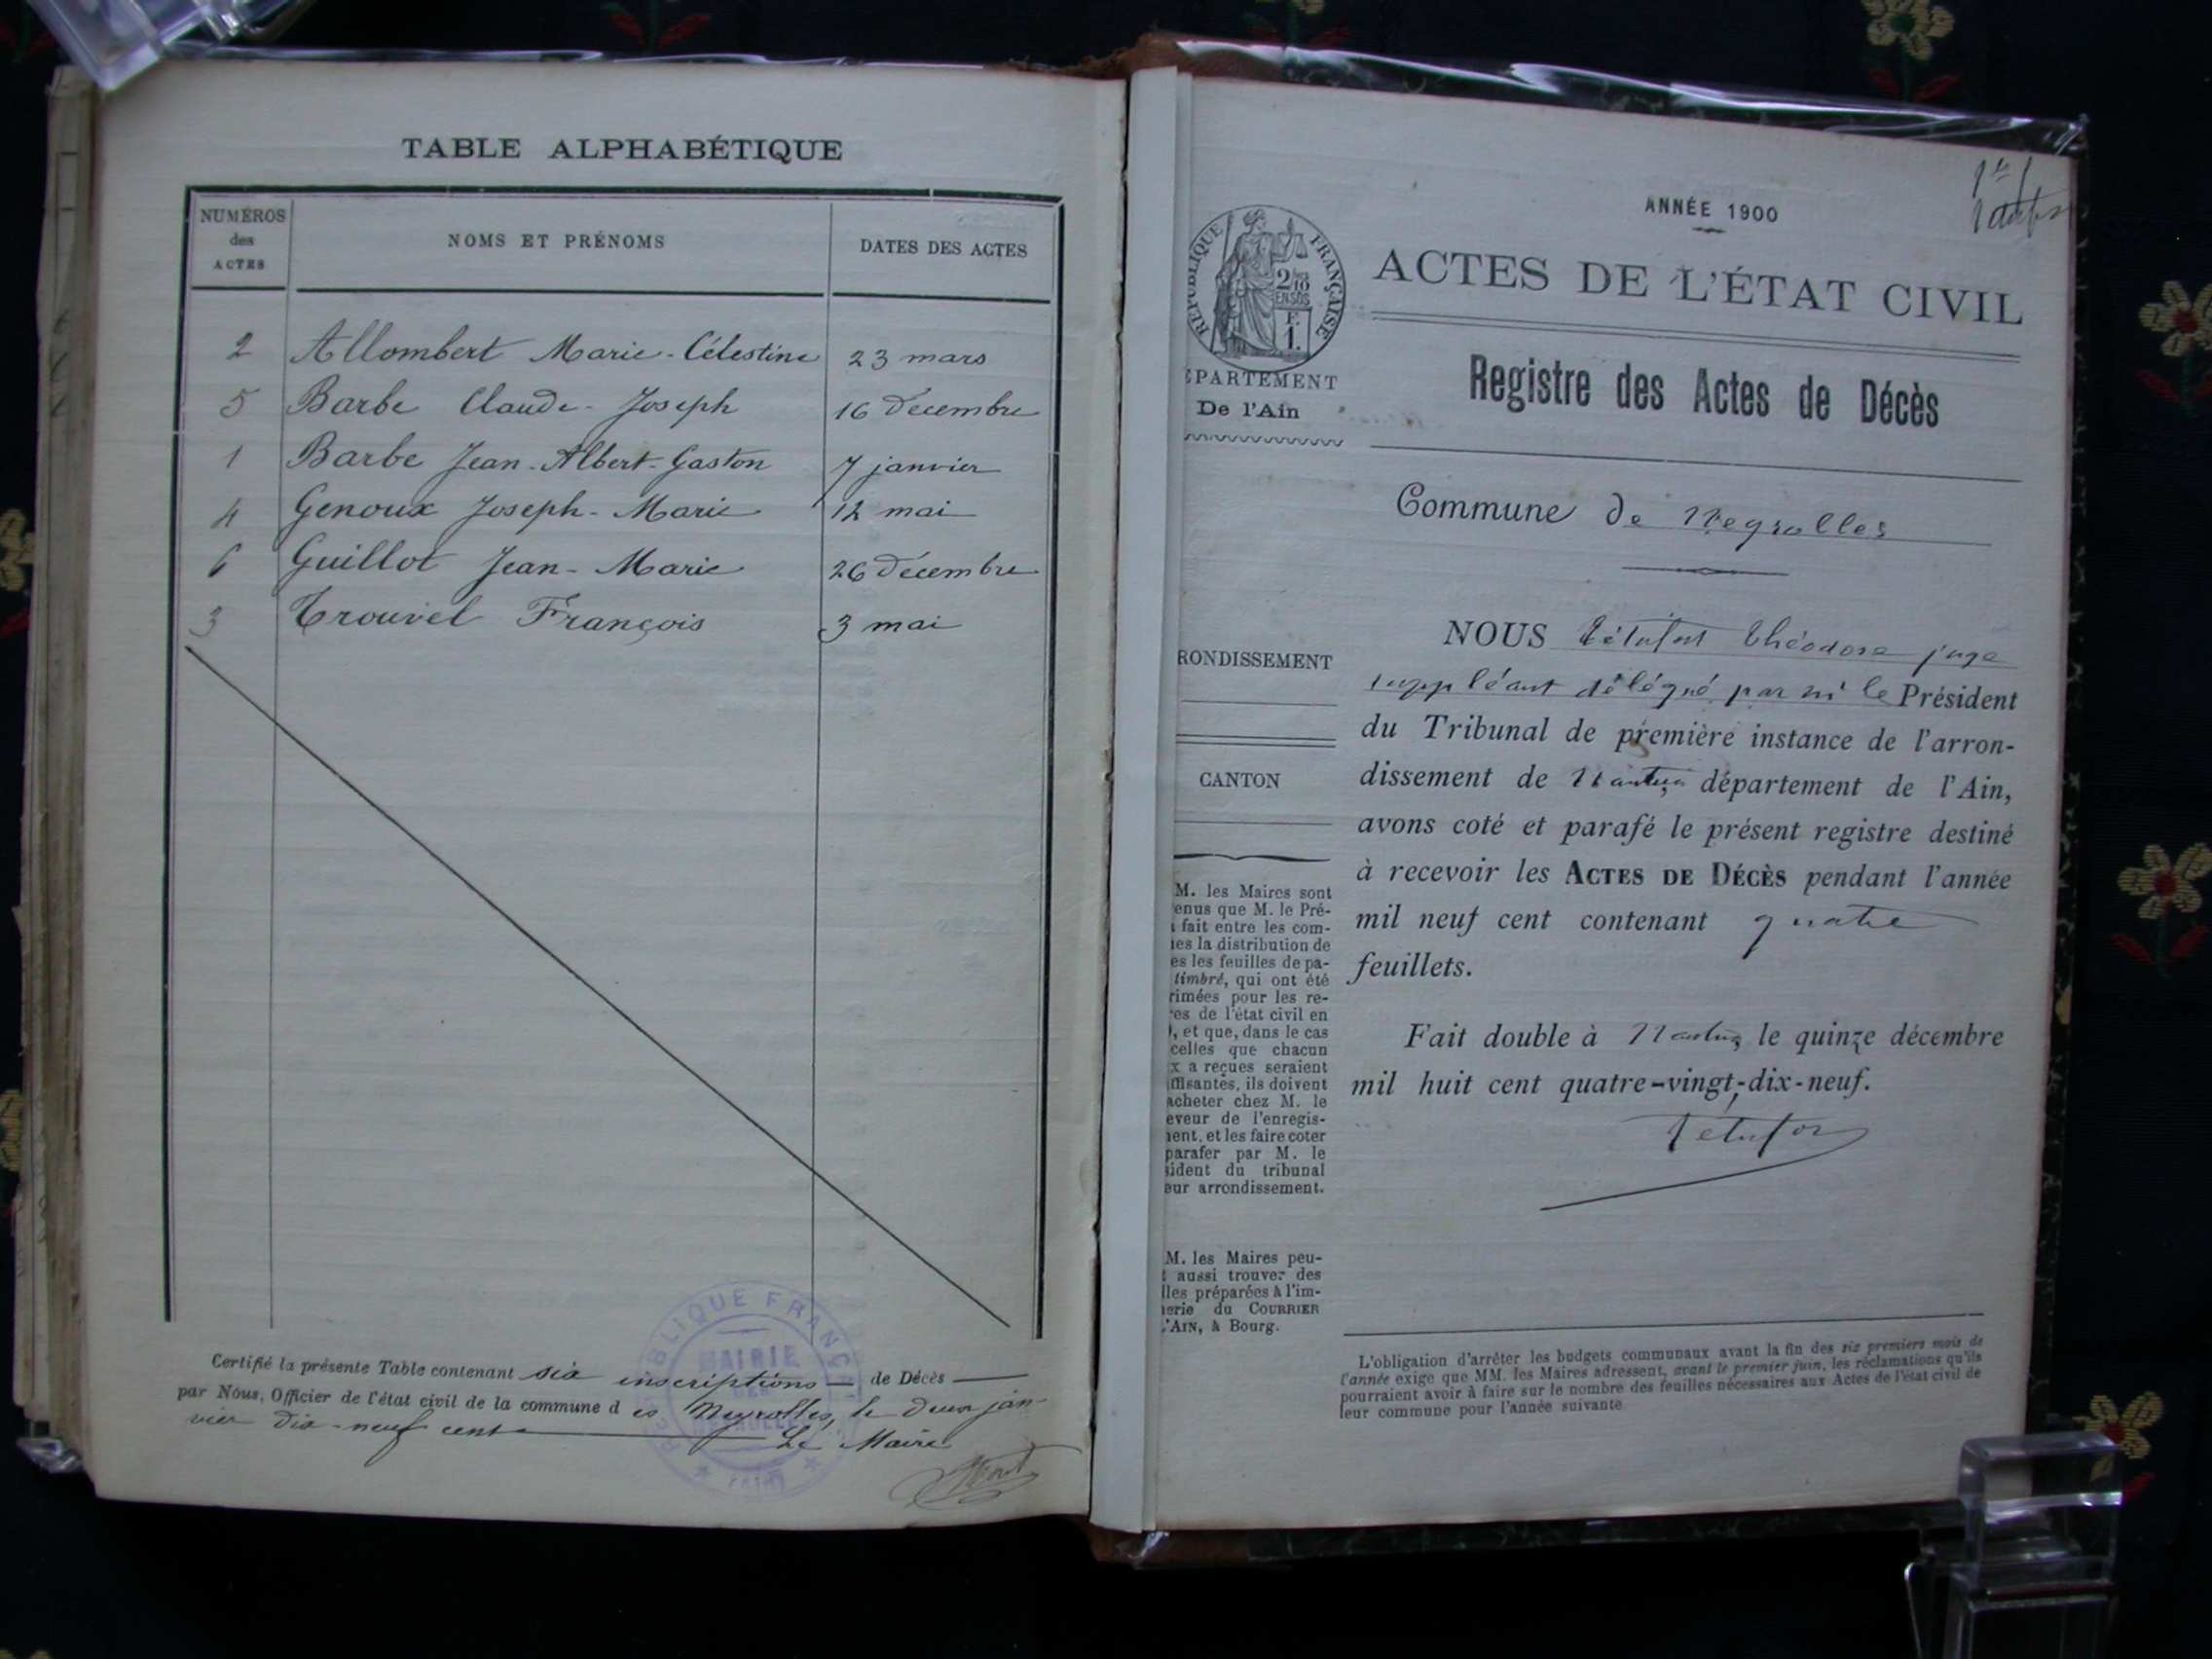 TABLE ALPHABÉTIQUE
NUMÉROS
des
ACTES
NOMS ET PRÉNOMS
DATES DES ACTES
2 Allombert Marie-Célestine 23 mars
5 Barbe Claude-Joseph 16 décembre
1 Barbe Jean-Albert-Gaston 7 janvier
4 Genoux Joseph-Marie 12 mai
6 Guillot Jean-Marie 26 décembre
3 Trouvel François 3 mai
Certifié la présente Table contenant six inscriptions de Décès
par Nous, Officier de l'état civil de la commune des Neyrolles, le deux jan-
vier dix-neuf cent
Le Maire
RÉPUBLIQUE FRANÇAISE
MAIRIE
DES
NEYROLLES
(AIN)
ANNÉE 1900
ACTES DE L'ÉTAT CIVIL
RÉPUBLIQUE FRANÇAISE
2/10
EN SUS
F.
1.
EPARTEMENT
De l'Ain
Registre des Actes de Décès
Commune de Neyrolles
RONDISSEMENT
CANTON
NOUS Tétufort Théodore juge
suppléant délégué par m. le Président
du Tribunal de première instance de l'arron-
dissement de Nantua département de l'Ain,
avons coté et parafé le présent registre destiné
à recevoir les ACTES DE DÉCÈS pendant l'année
mil neuf cent contenant quatre
feuillets.
Fait double à Nantua le quinze décembre
mil huit cent quatre-vingt-dix-neuf.
M. les Maires sont
enus que M. le Pré-
fait entre les com-
es la distribution de
es les feuilles de pa-
timbré, qui ont été
rimées pour les re-
es de l'état civil en
, et que, dans le cas
celles que chacun
x a reçues seraient
ffisantes, ils doivent
acheter chez M. le
eveur de l'enregis-
ent, et les faire coter
parafer par M. le
ident du tribunal
eur arrondissement.
M. les Maires peu-
t aussi trouver des
lles préparées à l'im-
erie du COURRIER
'AIN, à Bourg.
L'obligation d'arrêter les budgets communaux avant la fin des six premiers mois de
l'année exige que MM. les Maires adressent, avant le premier juin, les réclamations qu'ils
pourraient avoir à faire sur le nombre des feuilles nécessaires aux Actes de l'état civil de
leur commune pour l'année suivante.